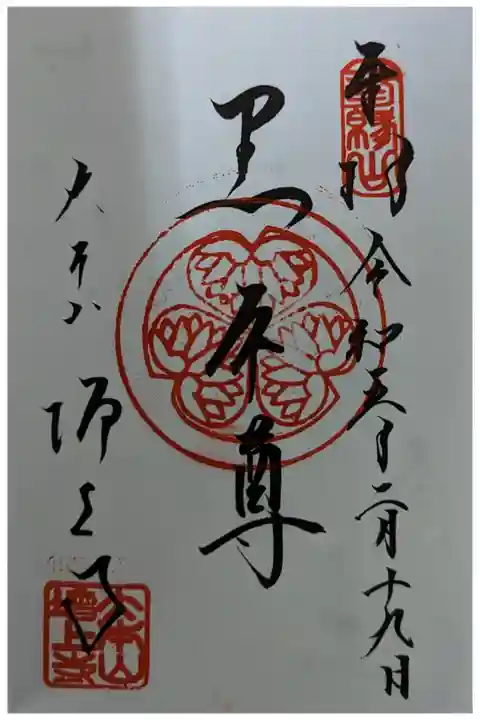 奉拝 令和五年二月十九日
黒本尊
大本山 増上寺
三縁山
大本山増上寺